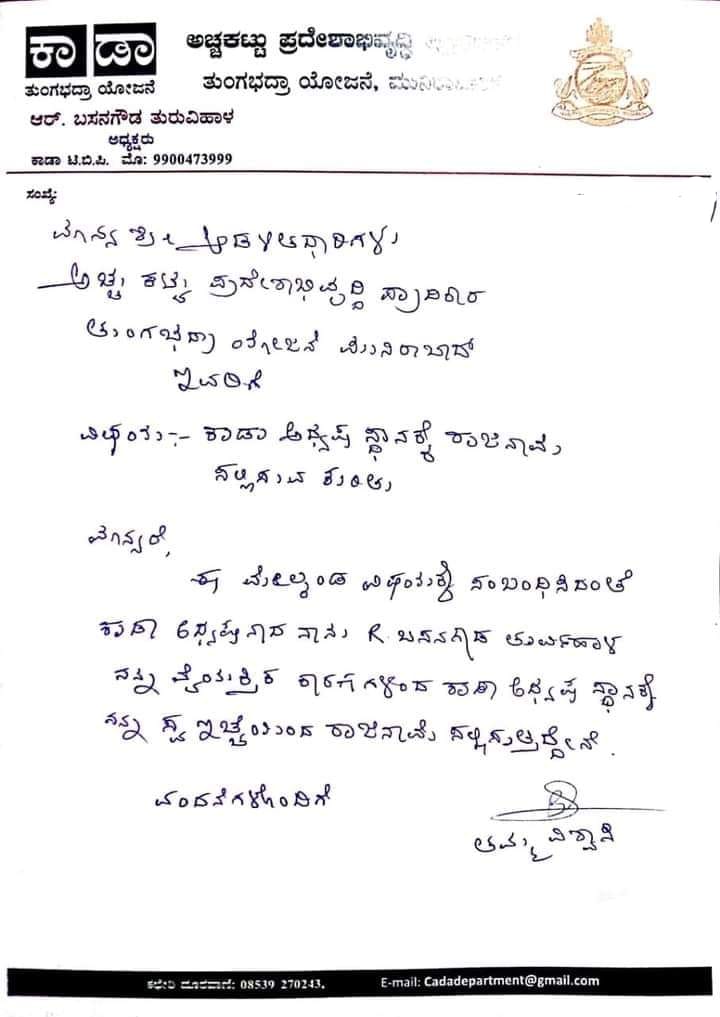 ಕಾಡಾ
ತುಂಗಭದ್ರಾ ಯೋಜನೆ
ಅಚ್ಚುಕಟ್ಟು ಪ್ರದೇಶಾಭಿವೃದ್ಧಿ
ತುಂಗಭದ್ರಾ ಯೋಜನೆ, ಮುನಿರಾಬಾದ
ಆರ್. ಬಸನಗೌಡ ತುರುವಿಹಾಳ
ಅಧ್ಯಕ್ಷರು
ಕಾಡಾ ಟಿ.ಬಿ.ಪಿ. ಮೊ: 9900473999
ಸಂಖ್ಯೆ:
ಮಾನ್ಯ ಶ್ರೀ ಆಡಳಿತಾಧಿಕಾರಿಗಳು
ಅಚ್ಚು ಕಟ್ಟು ಪ್ರದೇಶಾಭಿವೃದ್ಧಿ ಪ್ರಾಧಿಕಾರ
ತುಂಗಭದ್ರಾ ಯೋಜನೆ ಮುನಿರಾಬಾದ್
ಇವರಿಗೆ
ವಿಷಯ:- ಕಾಡಾ ಅಧ್ಯಕ್ಷ ಸ್ಥಾನಕ್ಕೆ ರಾಜಿನಾಮೆ
ಸಲ್ಲಿಸುವ ಕುರಿತು
ಮಾನ್ಯರೆ,
ಈ ಮೇಲ್ಕಂಡ ವಿಷಯಕ್ಕೆ ಸಂಬಂಧಿಸಿದಂತೆ
ಕಾಡಾ ಅಧ್ಯಕ್ಷನಾದ ನಾನು R. ಬಸನಗೌಡ ತುರ್ವಿಹಾಳ
ನನ್ನ ವೈಯಕ್ತಿಕ ಕಾರಣಗಳಿಂದ ಕಾಡಾ ಅಧ್ಯಕ್ಷ ಸ್ಥಾನಕ್ಕೆ
ನನ್ನ ಸ್ವ ಇಚ್ಛೆಯಿಂದ ರಾಜಿನಾಮೆ ಸಲ್ಲಿಸುತ್ತಿದ್ದೇನೆ.
ವಂದನೆಗಳೊಂದಿಗೆ
ತಮ್ಮ ವಿಶ್ವಾಸಿ
ಕಛೇರಿ ದೂರವಾಣಿ: 08539 270243. E-mail: Cadadepartment@gmail.com